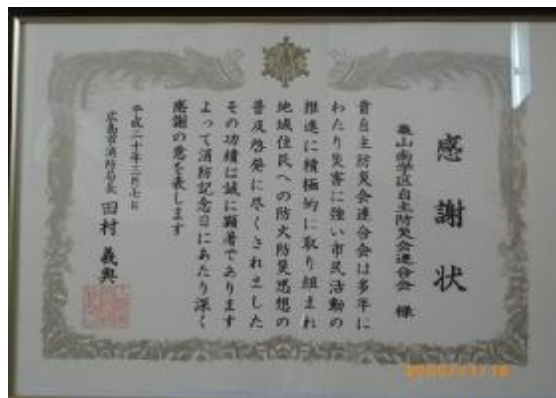 感謝状
亀山南学区自主防災会連合会 様
貴自主防災会連合会は多年に
わたり災害に強い市民活動の
推進に積極的に取り組まれ
地域住民への防火防災思想の
普及啓発に尽くされました
その功績は誠に顕著であります
よって消防記念日にあたり深く
感謝の意を表します
平成二十年三月七日
広島市消防局長 田村義典